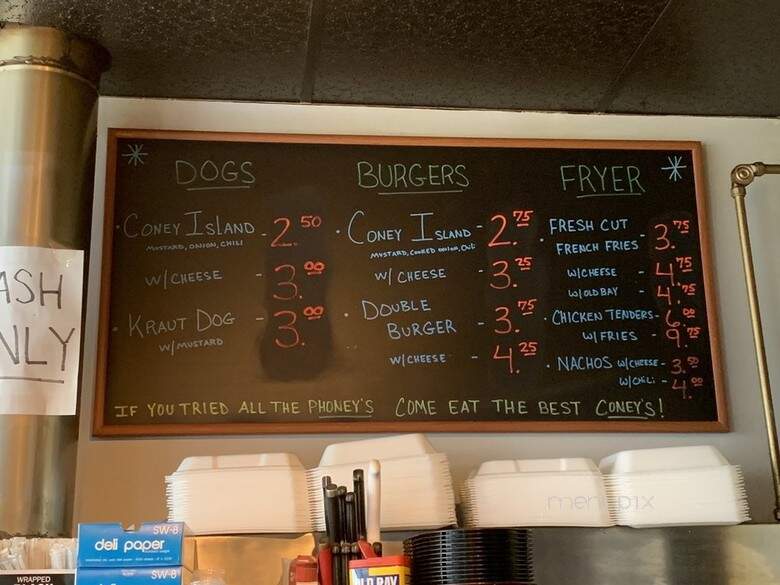 DOGS
CONEY ISLAND - 2.50
MUSTARD, ONION, CHILI
W/CHEESE - 3.00
KRAUT DOG - 3.00
W/MUSTARD
BURGERS
CONEY ISLAND - 2.75
MUSTARD, COOKED ONION,
W/ CHEESE - 3.25
DOUBLE
BURGER - 3.75
W/CHEESE - 4.25
FRYER
FRESH CUT
FRENCH FRIES - 3.75
W/CHEESE - 4.75
W/OLD BAY - 4.75
CHICKEN TENDERS - 6.00
W/ FRIES - 9.75
NACHOS W/CHEESE - 3.50
W/CHILI - 4.00
IF YOU TRIED ALL THE PHONEY'S COME EAT THE BEST CONEY'S!
ASH
NLY
SW-8
deli paper
SW-8
WRAPPED
LD BAY